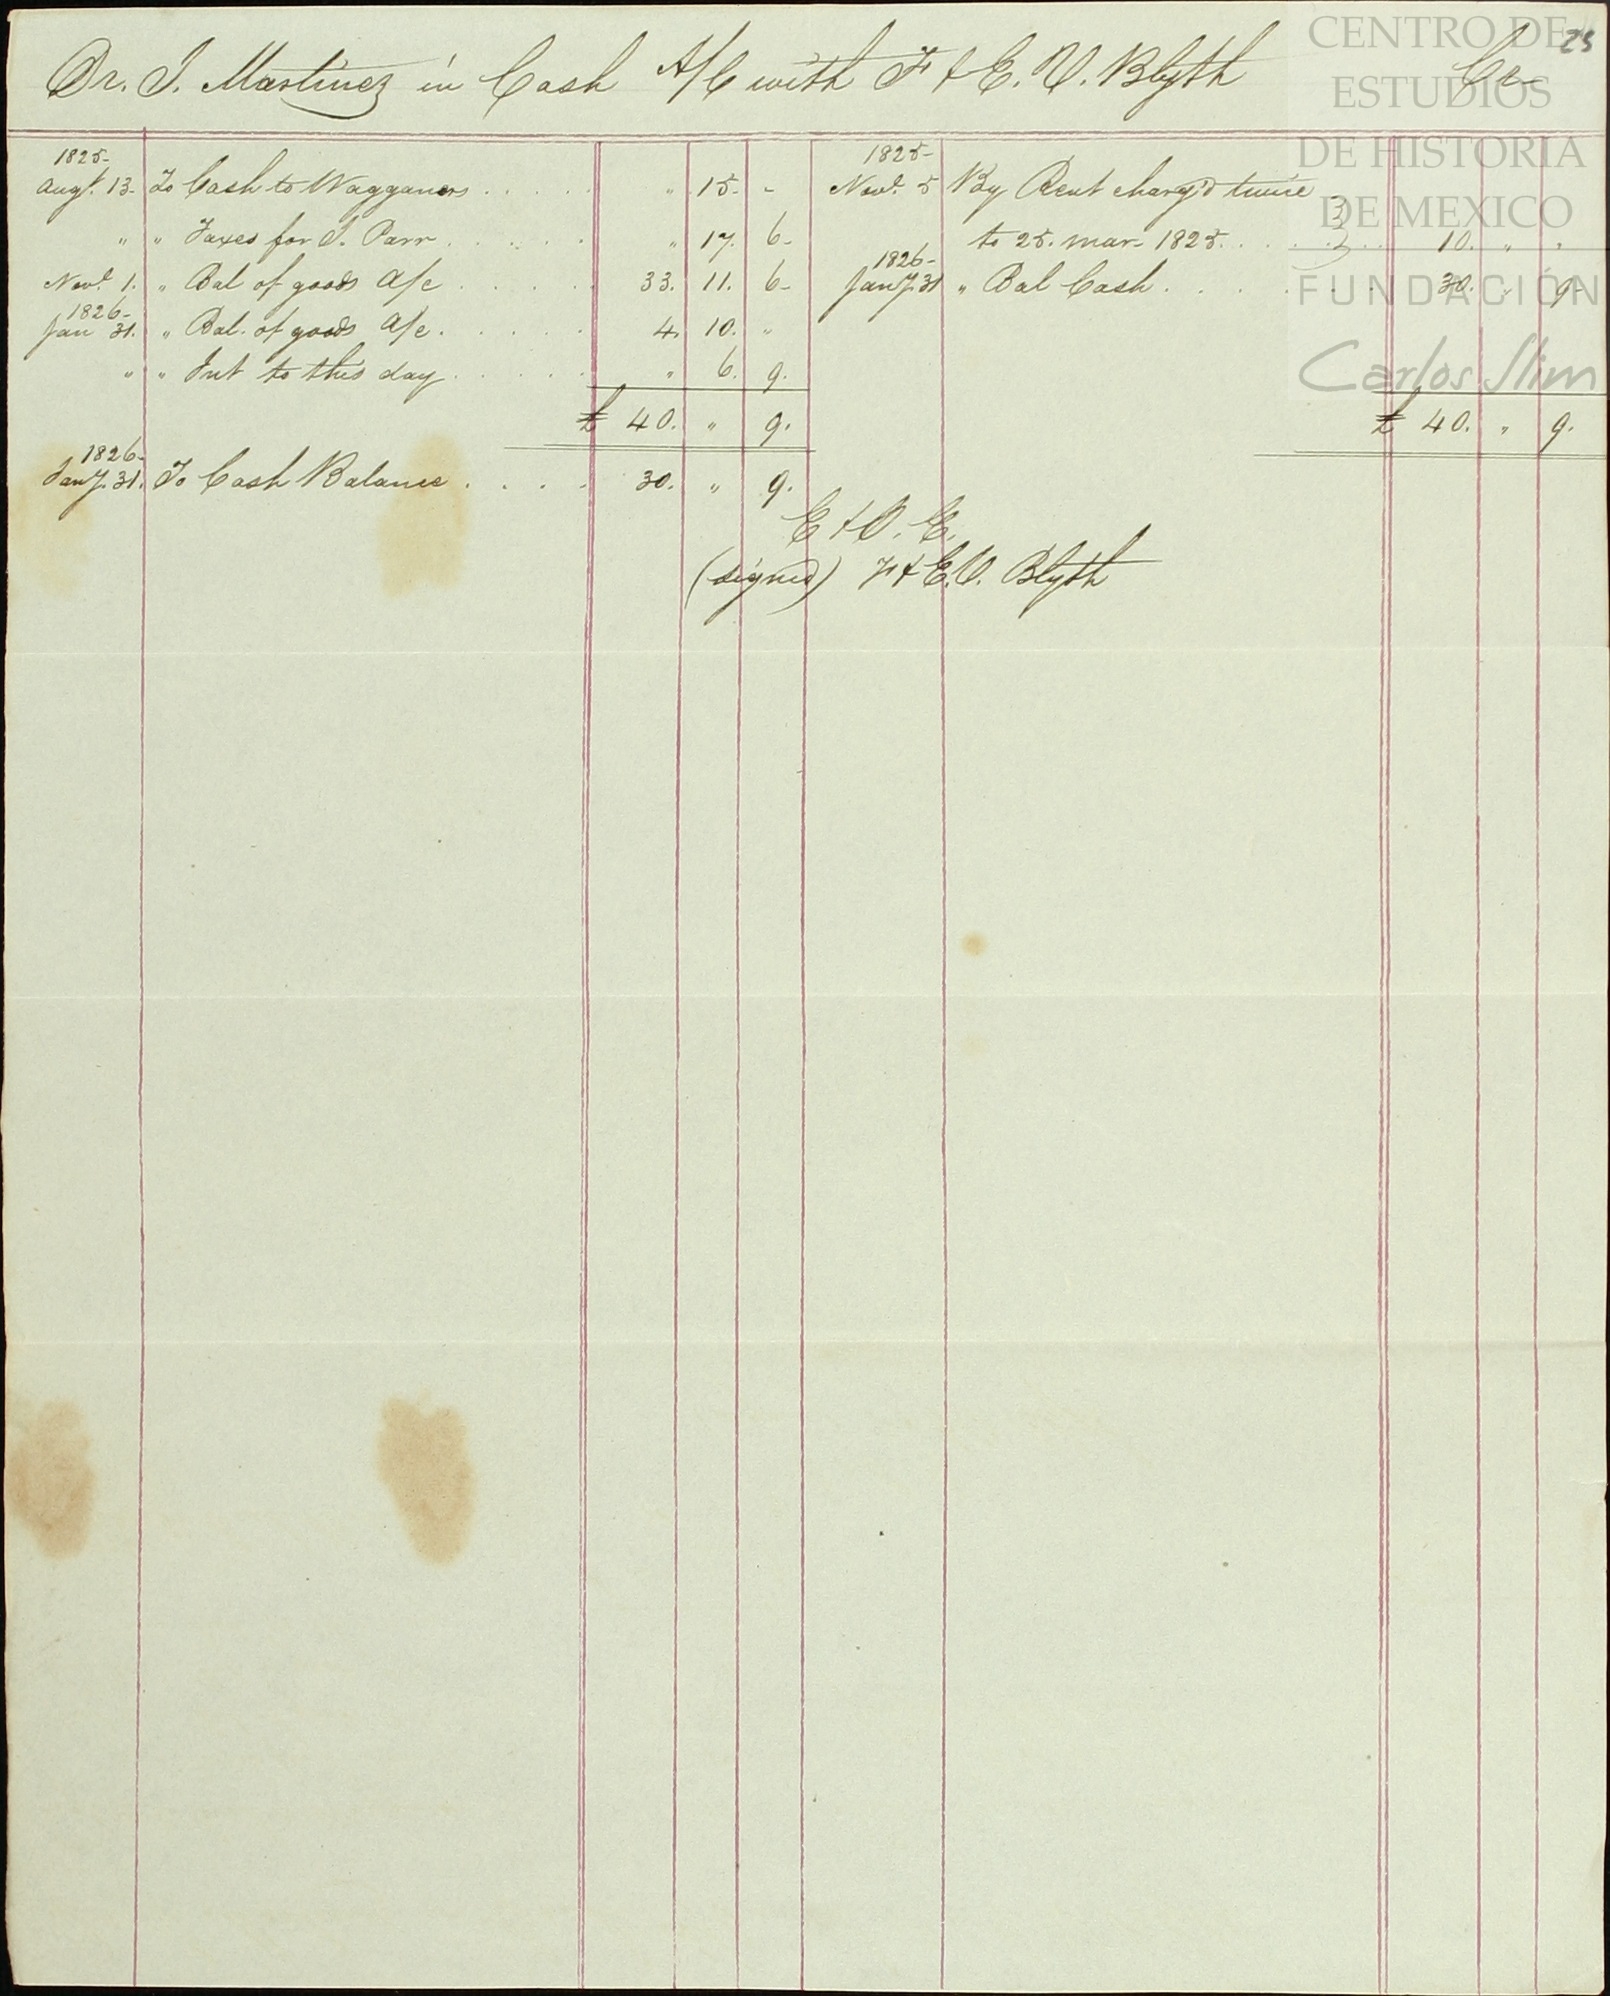 25
Dr. J. Martinez in Cash A/C with F & E. V. Blyth Cr
1825-
Augt. 13- To Cash to Wagganers . . . . . " 15. -
" " Taxes for J. Parr . . . . . " 17. 6-
Novr. 1. " Bal of goods A/c . . . . . 33. 11. 6-
1826-
Jan 31. " Bal. of goods A/c . . . . . 4. 10. "
" " Int to this day . . . . . " 6. 9.
£ 40. " 9.
1826-
Jany. 31. To Cash Balance . . . . 30. " 9.
1825-
Novr. 5 By Rent charg'd twice
to 25. mar- 1825. . . . . . 10. " "
1826-
Jany. 31 " Bal Cash . . . . . . 30. " 9
£ 40. " 9.
E & O. E.
(signed) F & E. V. Blyth
CENTRO DE
ESTUDIOS
DE HISTORIA
DE MEXICO
FUNDACIÓN
Carlos Slim